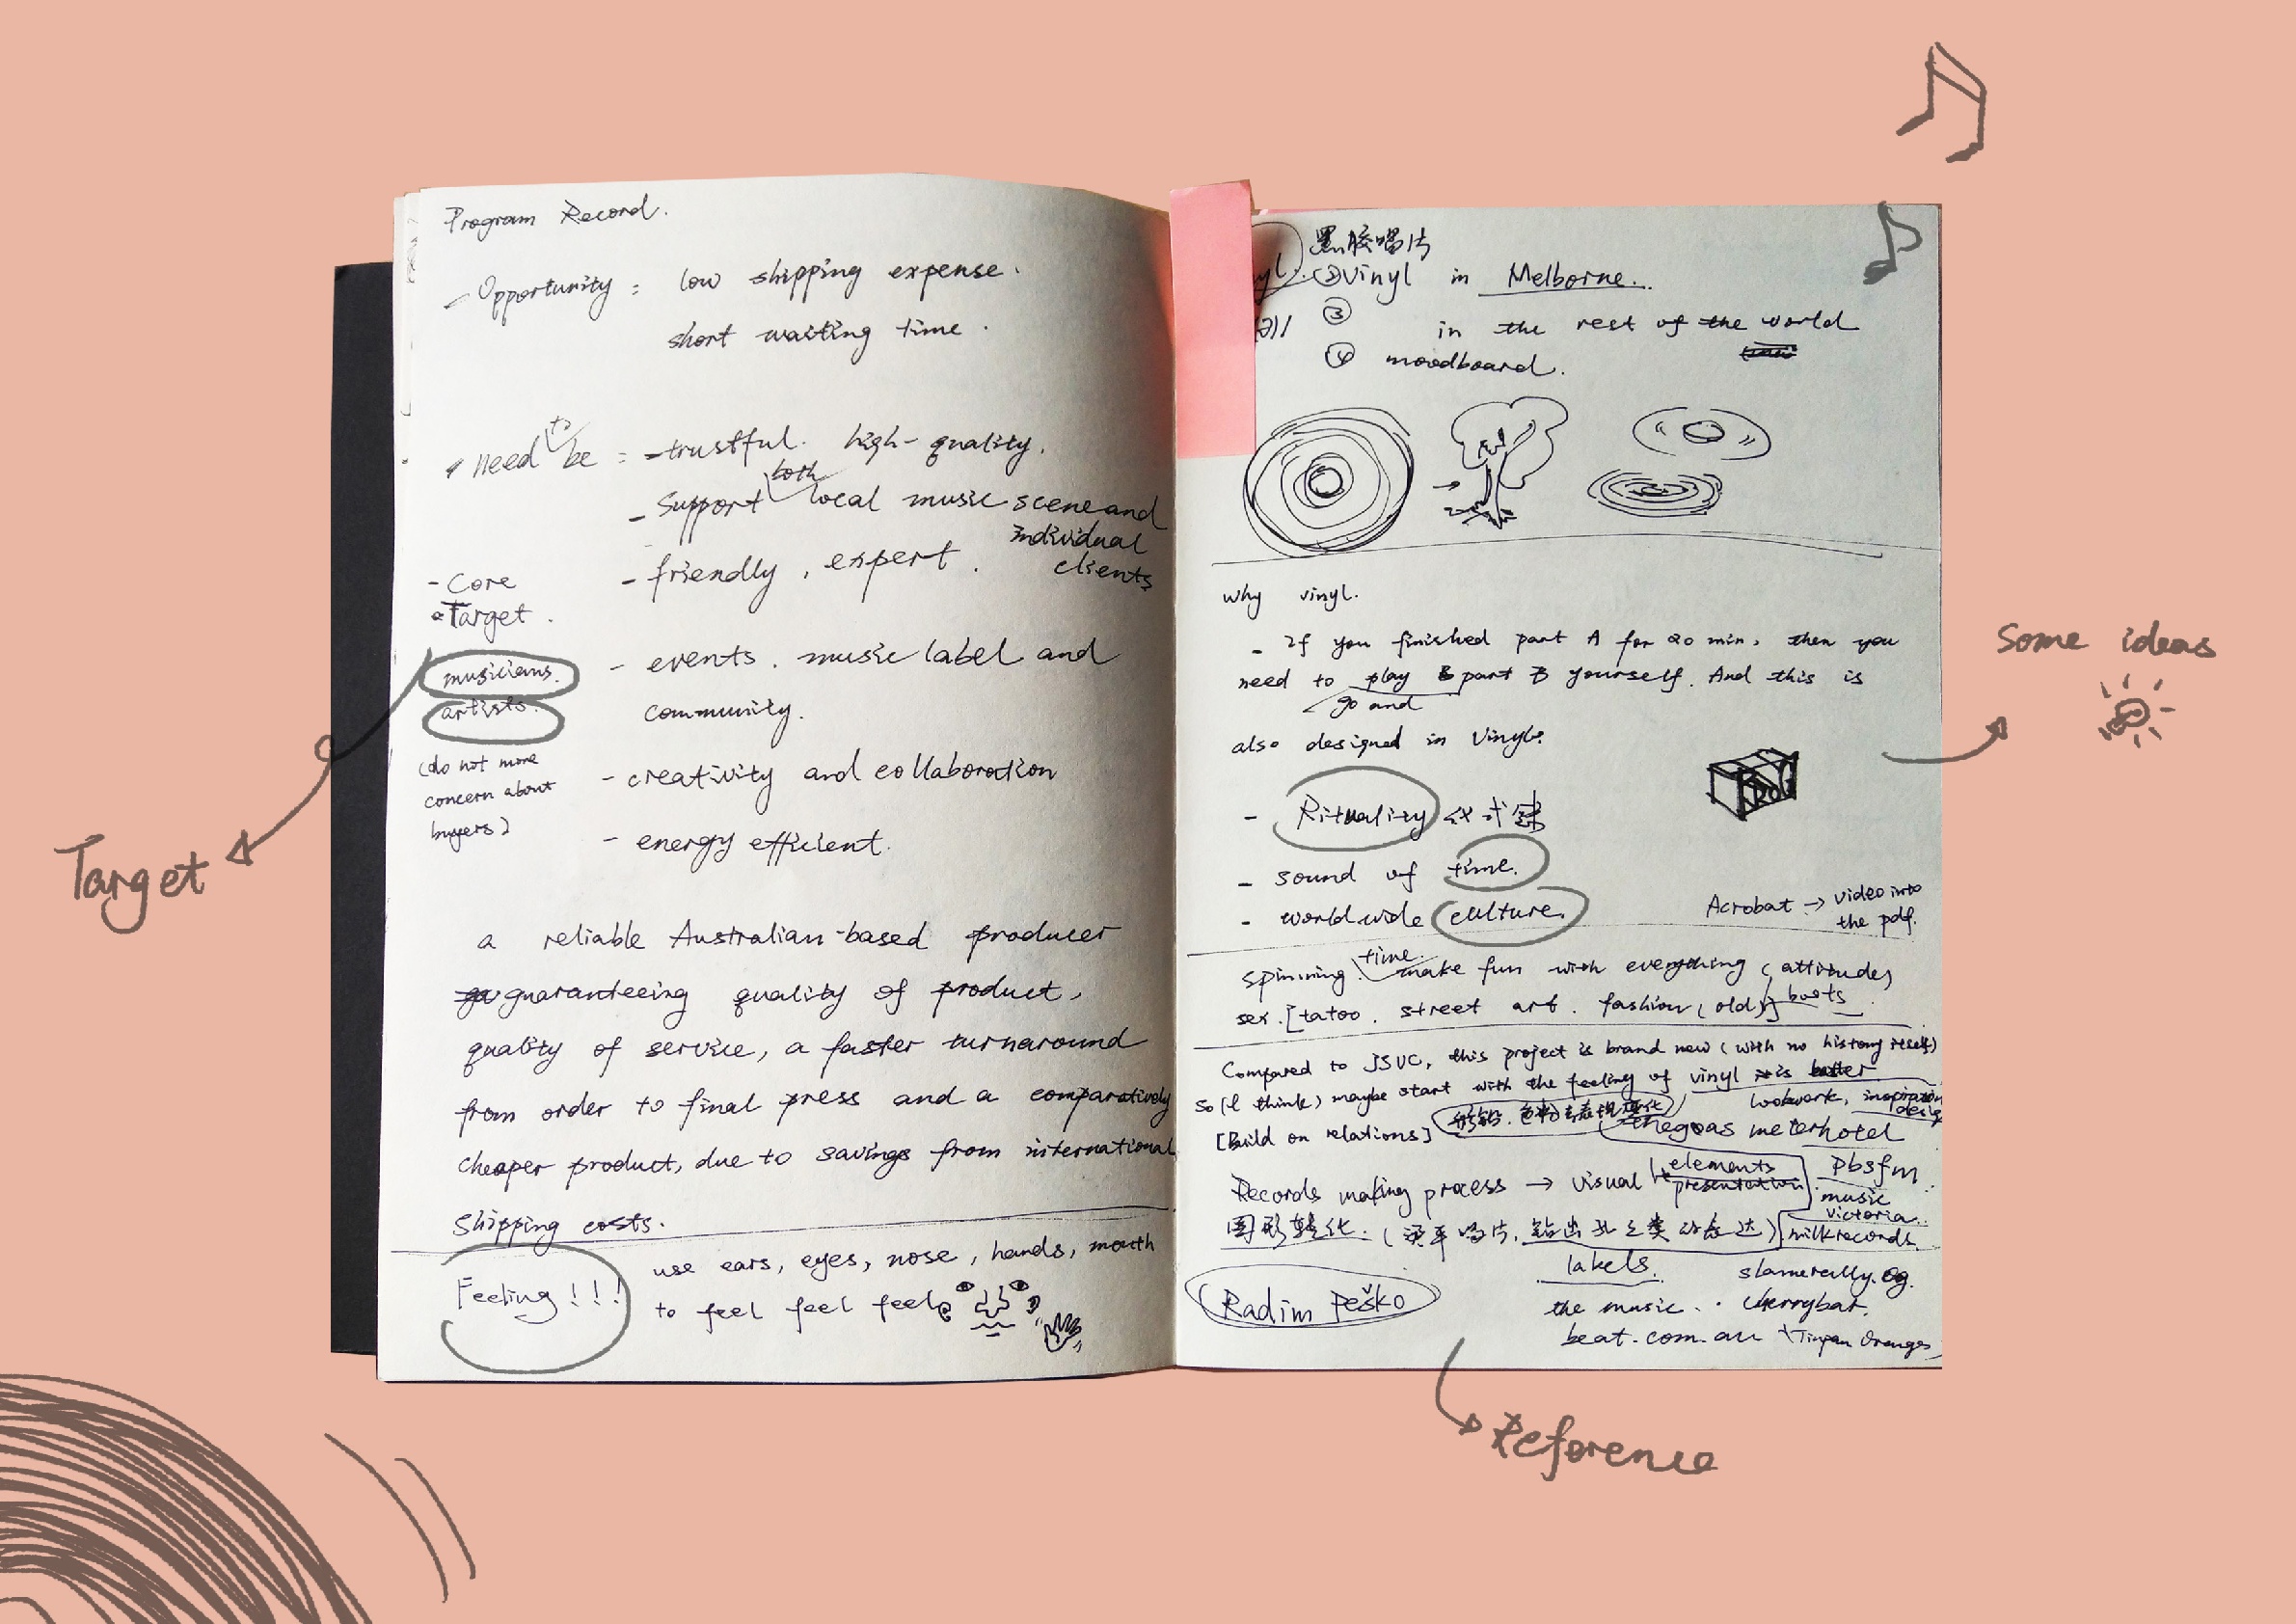 Program Record.
- Opportunity : low shipping expense.
short waiting time.
need to be : - trustful. high-quality.
- support both local music scene and
individual
clients
- friendly, expert.
- Core
Target.
musicians.
artists.
(do not more
concern about
buyers)
- events. music label and
community.
- creativity and collaboration
- energy efficient.
a reliable Australian-based producer
guaranteeing quality of product,
quality of service, a faster turnaround
from order to final press and a comparatively
cheaper product, due to savings from international
shipping costs.
Feeling!!!
use ears, eyes, nose, hands, mouth
to feel feel feel
黑胶唱片
② Vinyl in Melborne.
③ in the rest of the world
④ moodboard.
why vinyl.
- If you finished part A for 20 min, then you
need to play part B yourself. And this is
go and
also designed in Vinyl.
- Rituality 仪式感
- sound of time.
- worldwide culture.
Acrobat → video into
the pdf.
spinning. time. make fun with everything (attitude)
sex. [tatoo. street art. fashion (old)] boots
Compared to JSVC, this project is brand new (with no history itself)
so (I think) maybe start with the feeling of vinyl
lookwork, inspiration
[Build on relations]
thegasometerhotel
Records making process → visual elements
presentation
pbsfm
music
victoria
图形转化.
milkrecords.
labels.
Radim Peško
the music.
cherrybar.
beat.com.au
Tinpan Oranges
Target
Some ideas
Reference